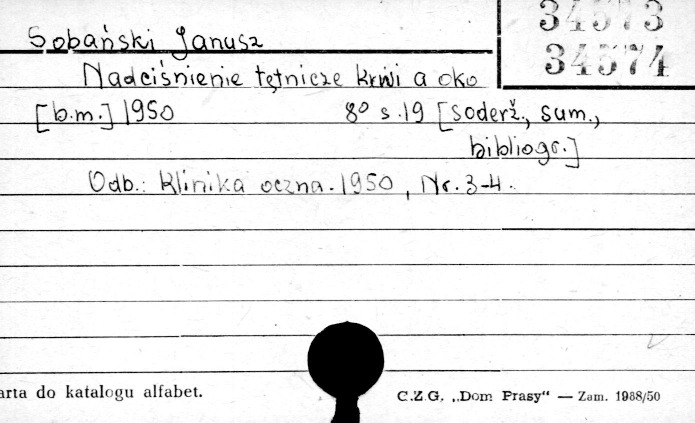 34573
34574
Sobański Janusz
Nadciśnienie tętnicze krwi a oko
[b.m.] 1950 8° s.19 [soderž., sum.,
bibliogr.]
Odb.: Klinika oczna. 1950, Nr. 3-4.
arta do katalogu alfabet.
C.Z.G. „Dom Prasy“ — Zam. 1988/50